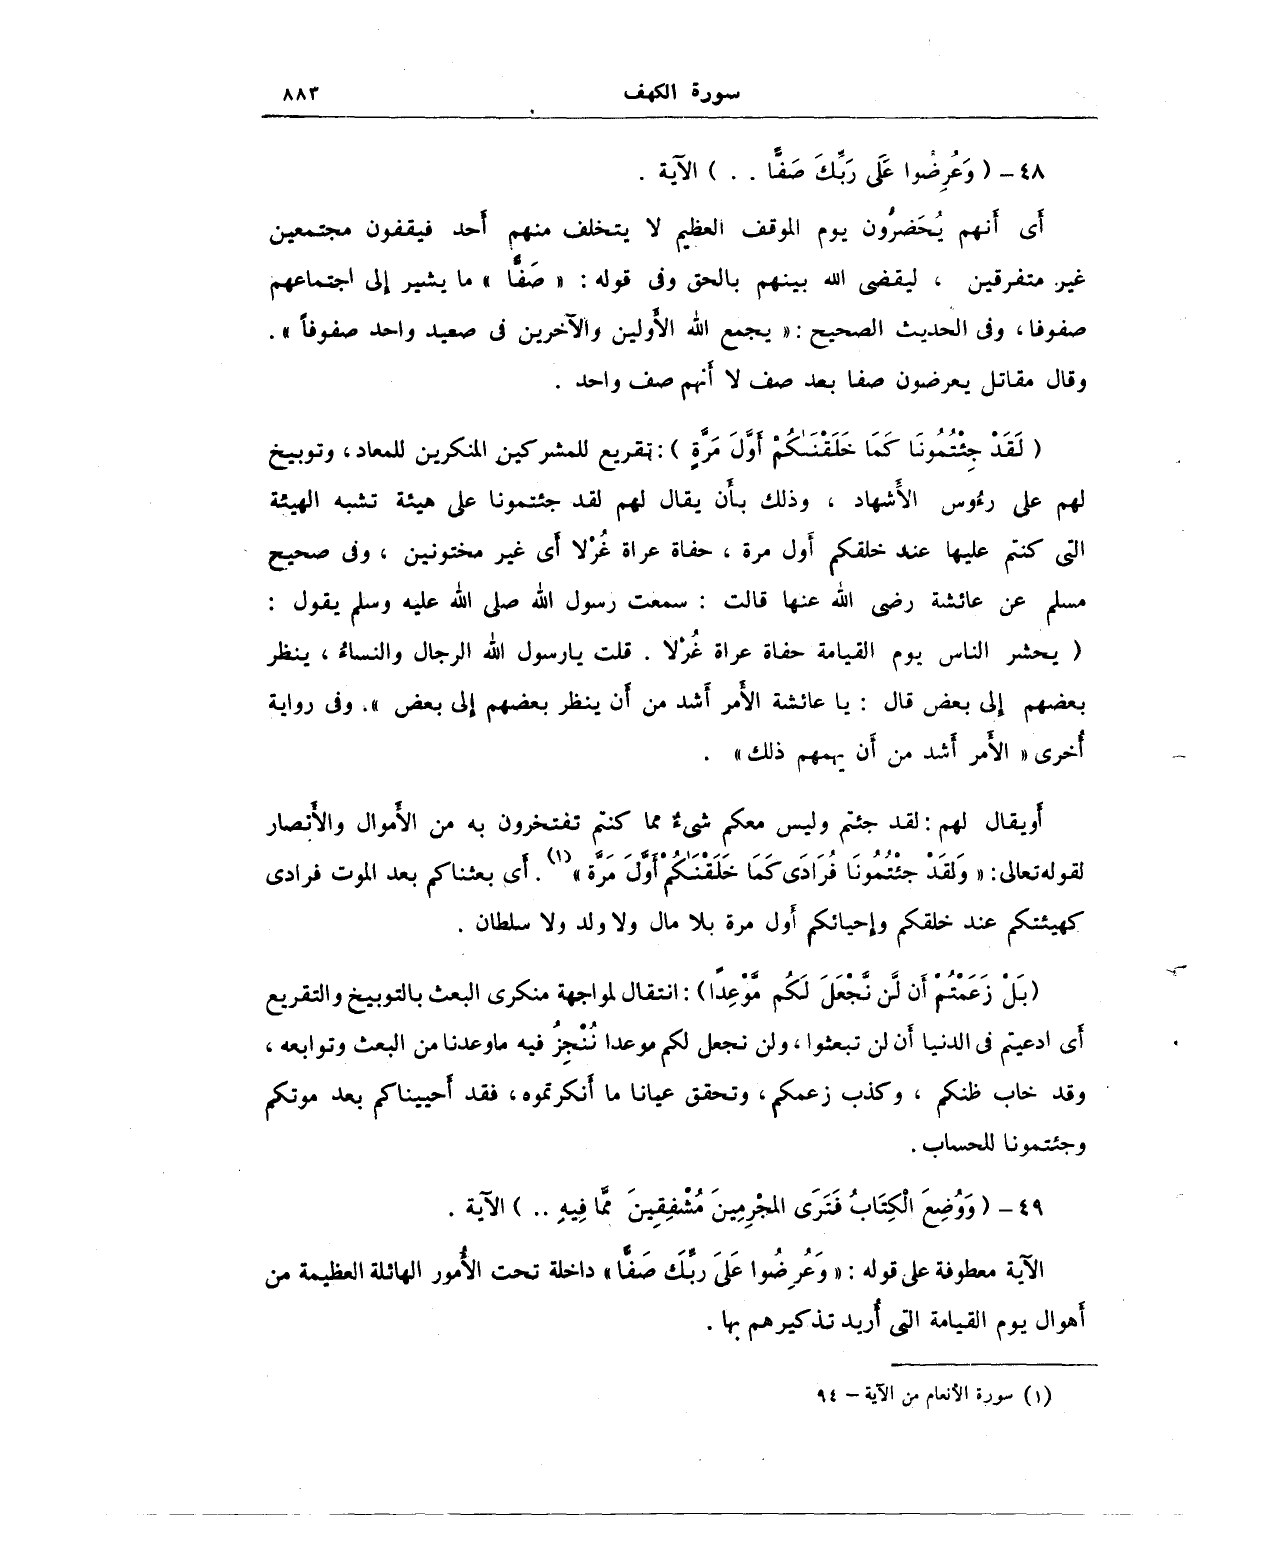 سورة الكهف ٨٨٣
٤٨ – ( وَعُرِضُوا عَلَى رَبِّكَ صَفًّا . . ) الآية .
أى أَنهم يُحَضرُون يوم الموقف العظيم لا يتخلف منهم أَحد فيقفون مجتمعين
غير متفرقين ، ليقضى الله بينهم بالحق وفى قوله : « صَفًّا » ما يشير إلى اجتماعهم
صفوفا ، وفى الحديث الصحيح : « يجمع الله الأَولين والآخرين فى صعيد واحد صفوفاً » .
وقال مقاتل يعرضون صفا بعد صف لا أَنهم صف واحد .
( لَقَدْ جِئْتُمُونَا كَمَا خَلَقْنَـٰكُمْ أَوَّلَ مَرَّةٍ ) : تقريع للمشركين المنكرين للمعاد ، وتوبيخ
لهم على رءُوس الأَشهاد ، وذلك بأَن يقال لهم لقد جئتمونا على هيئة تشبه الهيئة
التى كنتم عليها عند خلقكم أَول مرة ، حفاة عراة غُرْلا أَى غير مختونين ، وفى صحيح
مسلم عن عائشة رضى الله عنها قالت : سمعت رسول الله صلى الله عليه وسلم يقول :
( يحشر الناس يوم القيامة حفاة عراة غُرْلا . قلت يارسول الله الرجال والنساءُ ، ينظر
بعضهم إلى بعض قال : يا عائشة الأَمر أَشد من أَن ينظر بعضهم إلى بعض » . وفى رواية
أُخرى « الأَمر أَشد من أَن يهمهم ذلك » .
أَويقال لهم : لقد جئتم وليس معكم شىءٌ مما كنتم تفتخرون به من الأَموال والأَنصار
لقوله تعالى : « وَلَقَدْ جِئْتُمُونَا فُرَادَى كَمَا خَلَقْنَـٰكُمْ أَوَّلَ مَرَّة »(١) . أَى بعثناكم بعد الموت فرادى
كهيئتكم عند خلقكم وإحيائكم أَول مرة بلا مال ولا ولد ولا سلطان .
( بَلْ زَعَمْتُمْ أَن لَّن نَّجْعَلَ لَكُم مَّوْعِدًا ) : انتقال لمواجهة منكرى البعث بالتوبيخ والتقريع
أَى ادعيتم فى الدنيا أَن لن تبعثوا ، ولن نجعل لكم موعدا نُنْجِزُ فيه ماوعدنا من البعث وتوابعه ،
وقد خاب ظنكم ، وكذب زعمكم ، وتحقق عيانا ما أَنكرتموه ، فقد أَحييناكم بعد موتكم
وجئتمونا للحساب .
٤٩ – ( وَوُضِعَ الْكِتَابُ فَتَرَى المجْرِمِينَ مُشْفِقِينَ مِمَّا فِيهِ .. ) الآية .
الآية معطوفة على قوله : « وَعُرِضُوا عَلَىَ رَبِّكَ صَفًّا » داخلة تحت الأُمور الهائلة العظيمة من
أَهوال يوم القيامة التى أُريد تذكيرهم بها .
(١) سورة الأنعام من الآية – ٩٤